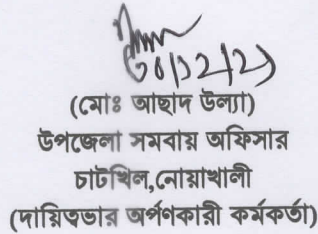 (মোঃ আছাদ উল্যা)
উপজেলা সমবায় অফিসার
চাটখিল,নোয়াখালী
(দায়িত্বভার অর্পণকারী কর্মকর্তা)